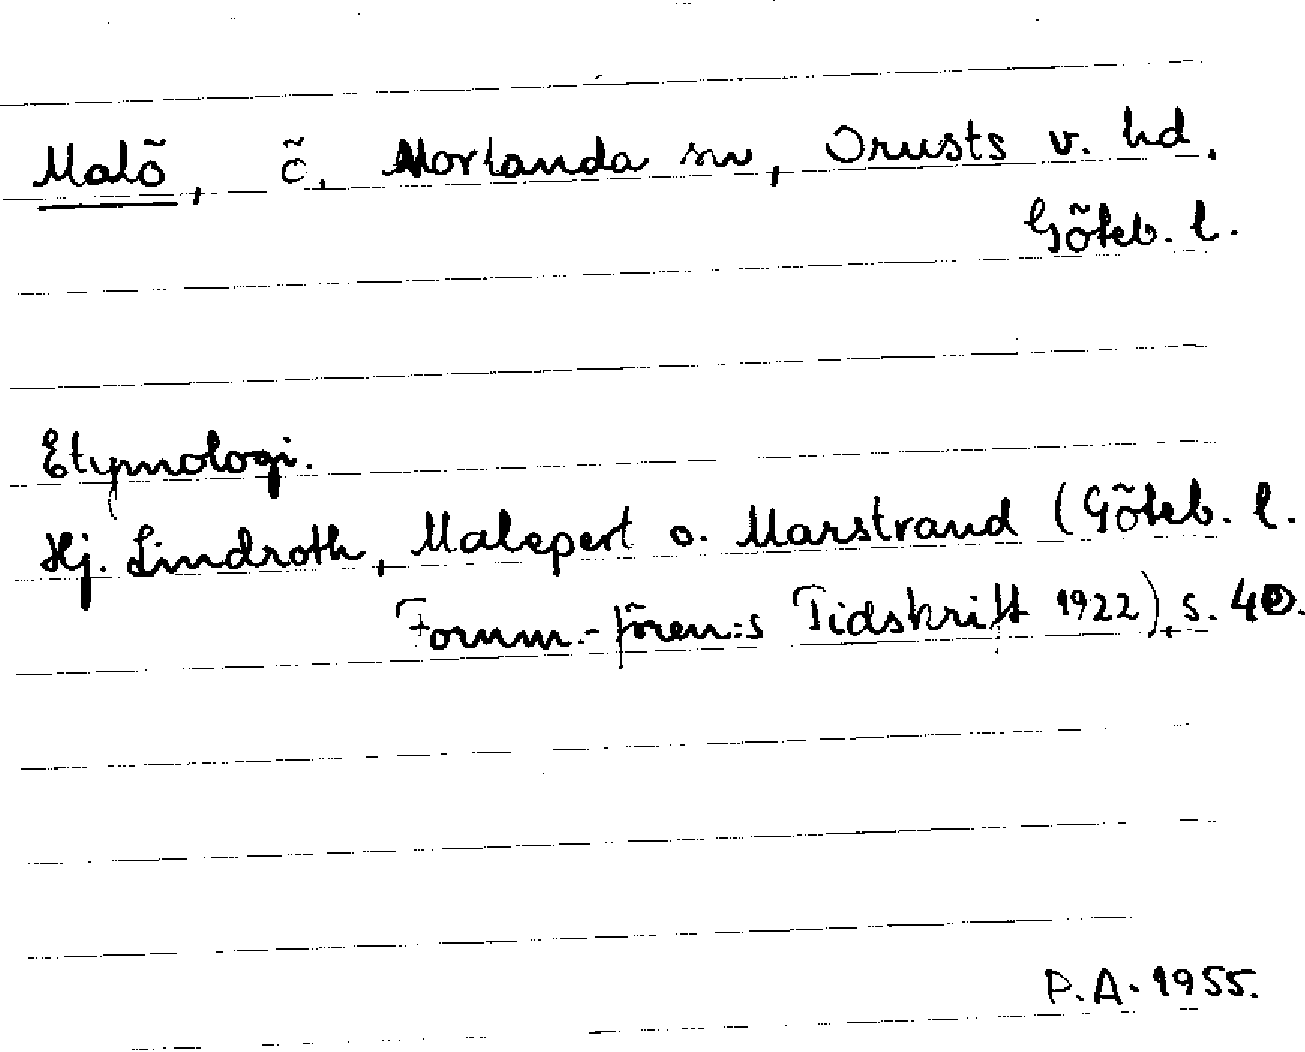 Malö, ö. Morlanda sn, Orusts v. hd.
Göteb. l.
Etymologi.
Hj. Lindroth, Malepert o. Marstrand (Göteb. l.
Fornm.-fören:s Tidskrift 1922), s.
P.A. 1955.